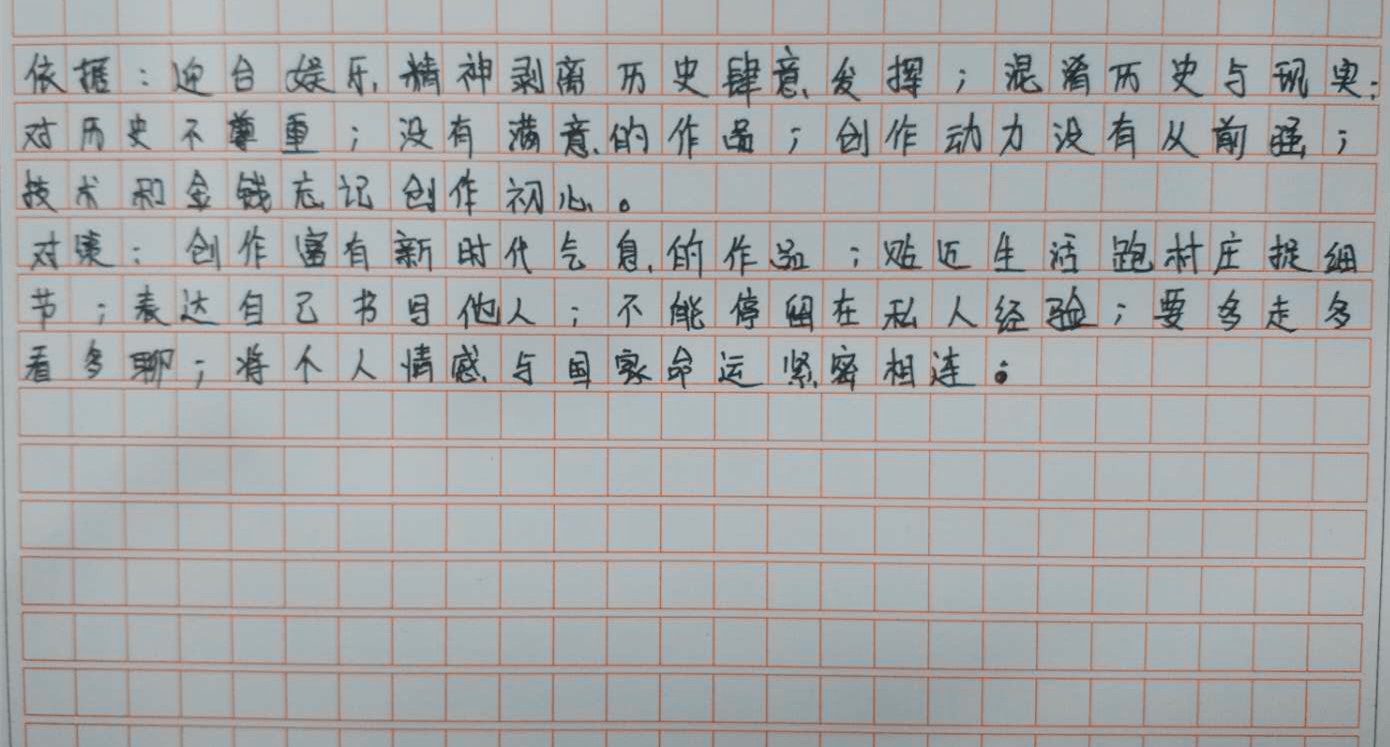 依据：迎台娱乐精神剥离历史肆意发挥；混淆历史与现实；
对历史不尊重；没有满意的作品；创作动力没有从前强；
技术和金钱忘记创作初心。
对策：创作富有新时代气息的作品；贴近生活跑村庄捉细
节；表达自己书写他人；不能停留在私人经验；要多走多
看多聊；将个人情感与国家命运紧密相连。